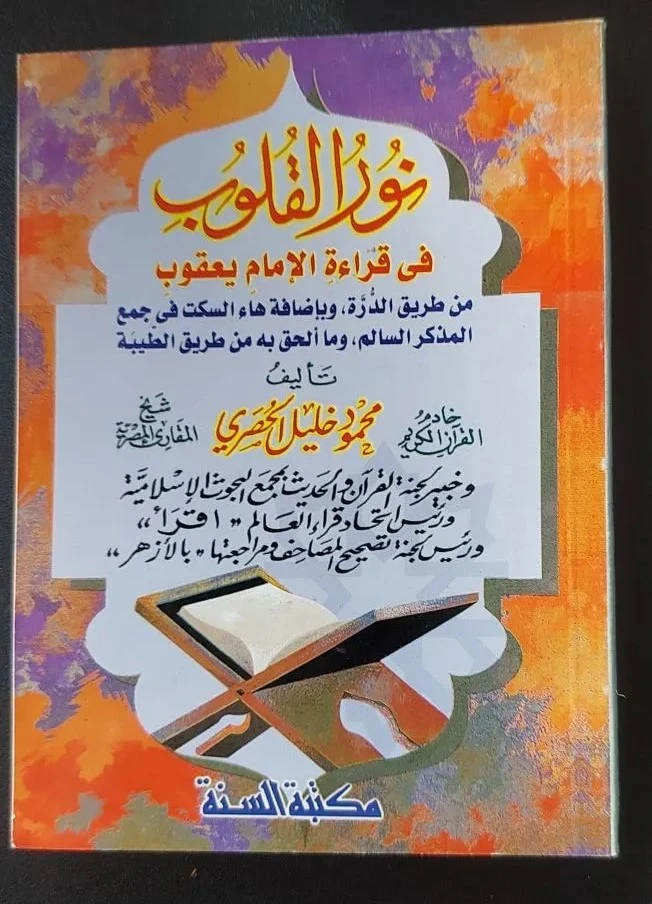 نُورُ القُلُوبِ
فى قراءةِ الإمامِ يعقوبِ
من طريق الدُّرَّة، وبإضافة هاء السكت فى جمع
المذكر السالم، وما ألحق به من طريق الطيِّبَة
تأليفُ
خادم القرآن الكريم محمود خليل الحُصَري شيخ المقارئ المصرية
وخبير لجنة القرآن والحديث بمجمع البحوث الإسلاميَّة
ورئيس اتحاد قراء العالم "اقرَأ"
ورئيس لجنة تصحيح المصاحف ومراجعتها "بالأزهر"
مكتبة السنة